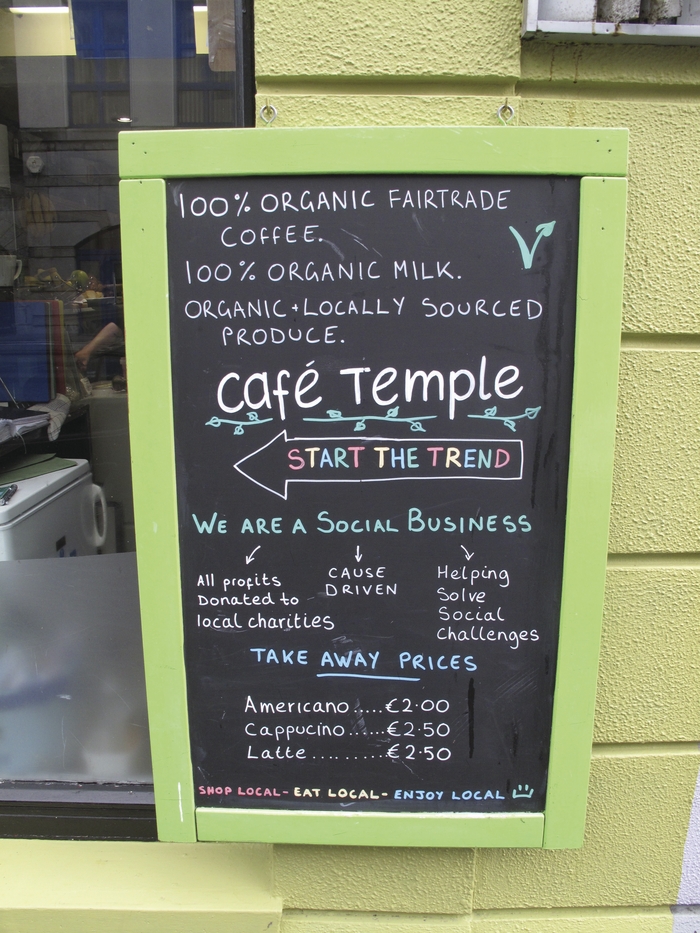 100% ORGANIC FAIRTRADE
COFFEE.
100% ORGANIC MILK.
ORGANIC+LOCALLY SOURCED
PRODUCE.
café Temple
START THE TREND
WE ARE A SOCIAL BUSINESS
All profits
Donated to
local charities
CAUSE
DRIVEN
Helping
Solve
Social
Challenges
TAKE AWAY PRICES
Americano.....€2·00
Cappucino......€2·50
Latte..........€2·50
SHOP LOCAL- EAT LOCAL- ENJOY LOCAL